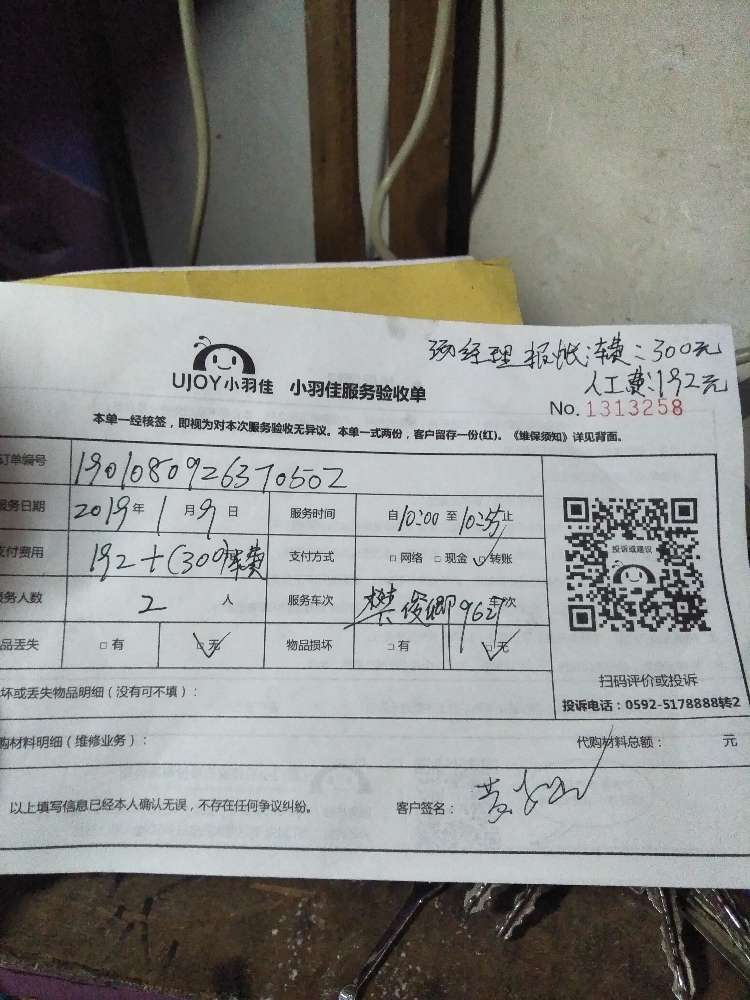 经理报帐:车费:300元
人工费:192元
UJOY小羽佳 小羽佳服务验收单
No. 1313258
本单一经核签，即视为对本次服务验收无异议。本单一式两份，客户留存一份(红)。《维保须知》详见背面。
订单编号 1901080926370502
服务日期 2019年1月9日 服务时间 自10:00至10:55止
投诉或建议
支付费用 192+(300)车费 支付方式 □网络 □现金 ☑转账
服务人数 2人 服务车次 樊俊卿962车次
品丢失 □有 ☑无 物品损坏 □有 ☑无
扫码评价或投诉
坏或丢失物品明细（没有可不填）：
投诉电话：0592-5178888转2
购材料明细（维修业务）： 代购材料总额： 元
以上填写信息已经本人确认无误，不存在任何争议纠纷。 客户签名：